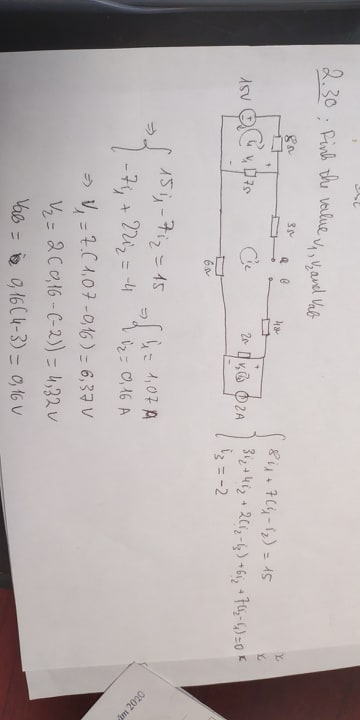 2.30; Find the value v₁, v₂ and Vab
8Ω 3Ω a B 4Ω
15V i₁ V₁ 7Ω i₂ 2Ω 2A
6Ω
8i₁ + 7(i₁ - i₂) = 15
3i₂ + 4i₂ + 2(i₂ - i₃) + 6i₂ + 7(i₂ - i₁) = 0
i₃ = -2
⇒ { 15i₁ - 7i₂ = 15 ⇒ { i₁ = 1,07 A
-7i₁ + 22i₂ = -4 i₂ = 0,16 A
⇒ V₁ = 7.(1,07 - 0,16) = 6,37 V
V₂ = 2(0,16 - (-2)) = 4,32 V
Vab = 0,16(4-3) = 0,16 V
2020